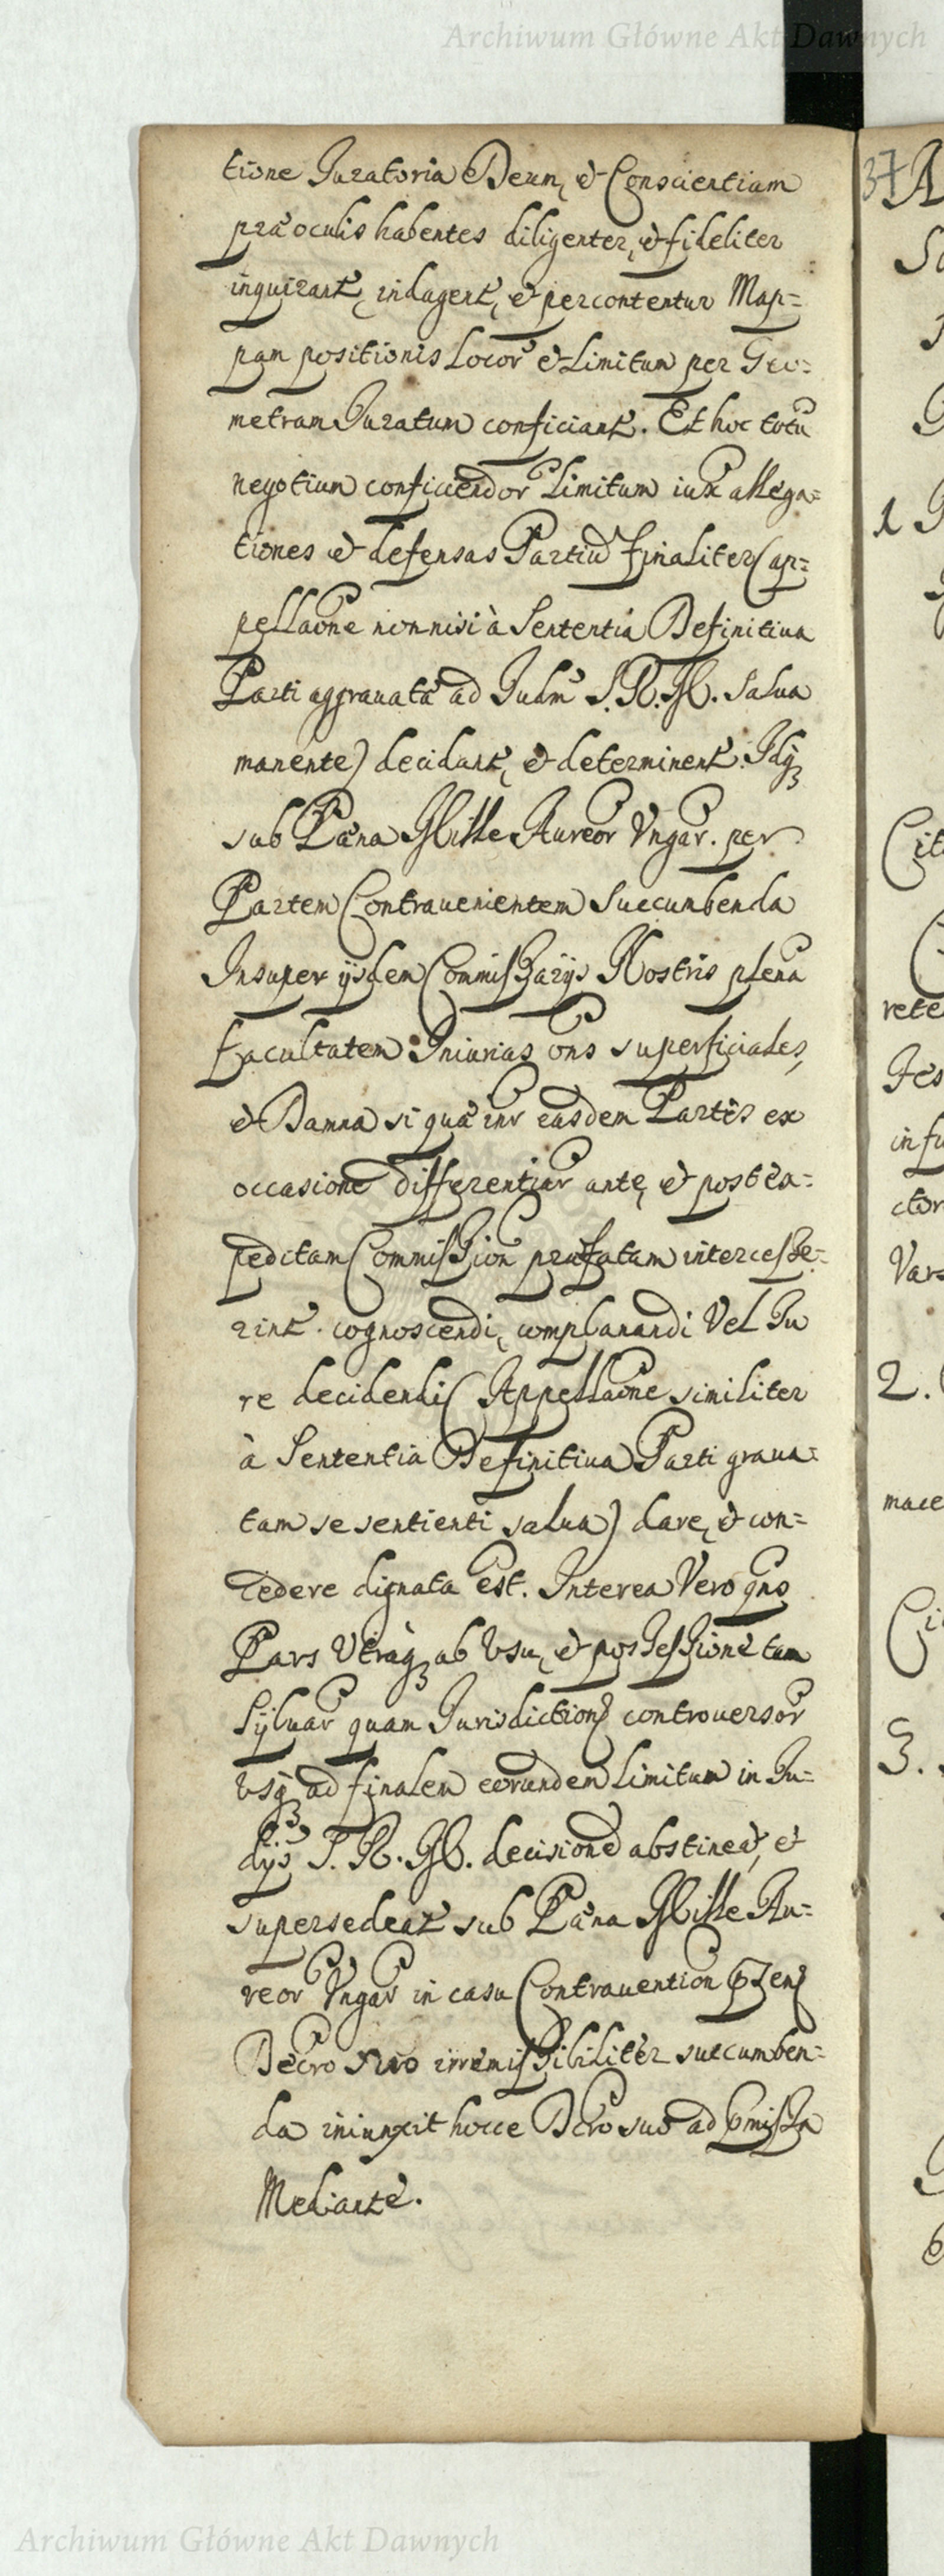 Archiwum Główne Akt Dawnych
tione Juratoria Deum, et Conscientiam
præ oculis habentes diligenter, et fideliter
inquirant, indagent, et percontentur Map=
pam positionis Locor et Limitum per Geo=
metram Juratum conficiant. Et hoc totū
negotium conficiendor Limitum iux allega=
tiones et defensas Partiū finaliter (ap=
pellaone nonnisi à Sententia Definitiua
Parti aggrauatæ ad Judm S.R.M. salua
manente) decidant, et determinent. Idq
sub Pæna Mille Aureor Vngar. per
Partem Contrauenientem succumbenda
Insuper ijsdem Commissarijs Nostris plenā
facultatem Iniurias ons superficiales,
et Damna si quæ inr easdem Partes ex
occasione differentiar ante, et post ex=
peditam Commission præfatam intercesse=
rint cognoscendi, complanandi Vel Ju
re decidendi (Appellaone similiter
à Sententia Definitiua Parti graua=
tam se sentienti salua) dare, et con=
cedere dignata est. Interea Vero qno
Pars Vtraq ab Vsu, et possessione tam
Syluar quam Jurisdictions controuersor
vsq ad finalem eorundem Limitum in Ju=
dijs S. R. M. decisione abstineat, et
supersedeat sub Pæna Mille Au=
reor Vngar in casu Contrauention
Decro suo irremissibiliter succumben=
da iniunxit hocce Dcro suo ad pmissa
Mediante.
37
1
2.
3.
rete
infu
mace
Archiwum Główne Akt Dawnych